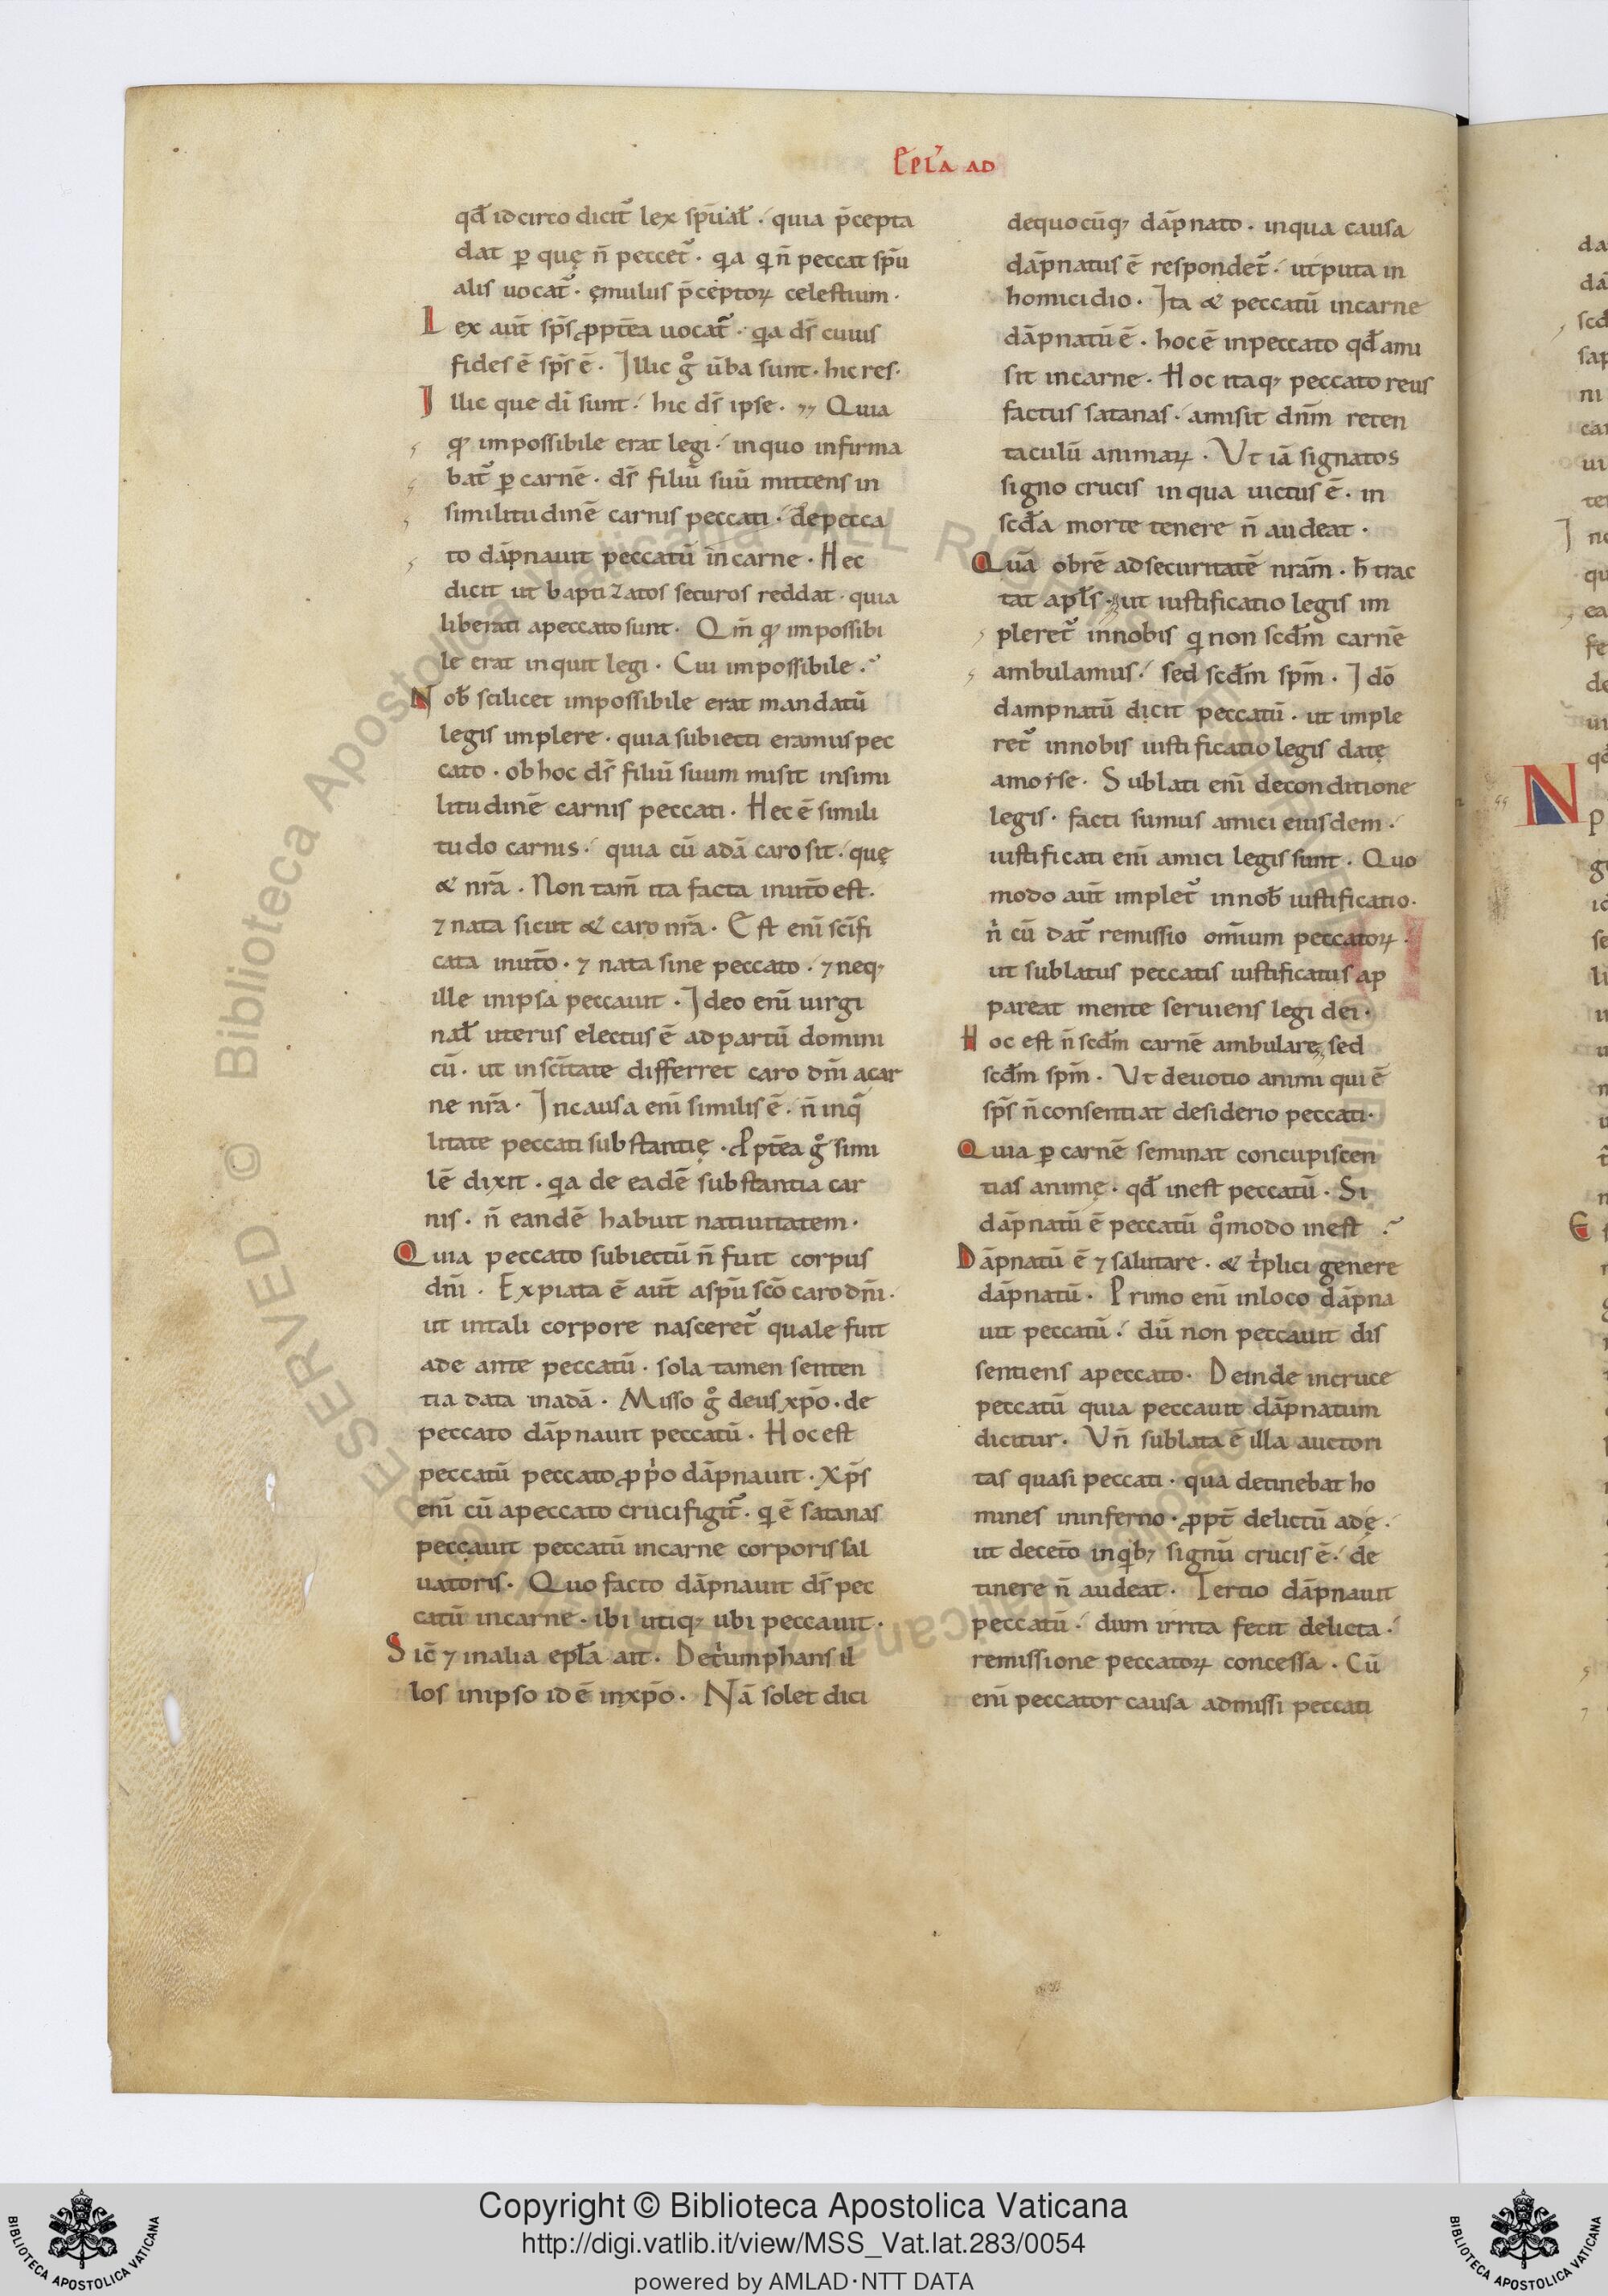 Ep̄l'a AD
qđ idcirco dicit᷑ lex sp̄uał · quia p̄cepta
dat ꝑ quę n̄ peccet᷑ · qͥa qͥ n̄ peccat sp̄u
alis uocat᷑ · ęmulus p̄ceptoꝝ celestium ·
Lex aut̄ sp̄s ꝓpt̄ea uocat᷑ · qͥa ds̄ cuius
fides ē sp̄s ē · Illic gͦ ūba sunt · hic res ·
Illic que dī sunt · hic ds̄ ipse · Quia
qͩ impossibile erat legi · inquo infirma
bat᷑ ꝑ carnē · ds̄ filiū suū mittens in
similitudinē carnis peccati · de pecca
to dāpnauit peccatū in carne · Hec
dicit ut baptizatos securos reddat · quia
liberati apeccato sunt · Qm̄ qͩ impossibi
le erat inquit legi · Cui impossibile ·
Nob̄ scilicet impossibile erat mandatū
legis implere · quia subiecti eramus pec
cato · ob hoc ds̄ filiū suum misit insimi
litudinē carnis peccati · Hec ē simili
tudo carnis · quia cū adā caro sit · quę
& nr̄a · Non tam̄ ita facta inut̄o est ·
⁊ nata sicut & caro nr̄a · Est enī scīfi
cata inut̄o · ⁊ nata sine peccato · ⁊ neqꝫ
ille inipsa peccauit · Ideo enī uirgi
nał uterus electus ē ad partū domini
cū · ut in scītate differret caro dn̄i acar
ne nr̄a · Incausa enī similis ē · n̄ inqͣ
litate peccati substantię · Ꝓpt̄ea gͦ simi
lē dixit · qͥa de eadē substantia car
nis · n̄ eandē habuit natiuitatem ·
Quia peccato subiectū n̄ fuit corpus
dn̄i · Expiata ē aut̄ aspū scō caro dn̄i ·
ut intali corpore nasceret᷑ quale fuit
ade ante peccatū · sola tamen senten
tia data inadā · Misso gͦ deus xp̄o · de
peccato dāpnauit peccatū · Hoc est
peccatū peccato ꝓpͥo dāpnauit · Xp̄s
enī cū apeccato crucifigit᷑ · qͥ ē satanas
peccauit peccatū incarne corporis sal
uatoris · Quo facto dāpnauit ds̄ pec
catū incarne · ibi utiqꝫ ubi peccauit ·
Sic̄ ⁊ inalia epła ait · Detͥumphans il
los inipso id ē inxp̄o · Nā solet dici
dequocūqꝫ dāpnato · inqua causa
dāpnatus ē respondet᷑ · utputa in
homicidio · Ita & peccatū incarne
dāpnatū ē · hoc ē inpeccato qđ ami
sit incarne · Hoc itaqꝫ peccato reus
factus satanas · amisit dn̄m reten
taculū animaꝝ · Ut iā signatos
signo crucis in qua uictus ē · in
scđa morte tenere n̄ audeat ·
Quā obrē adsecuritatē nrām · h̄ trac
tat apłs · ut iustificatio legis im
pleret᷑ innobis qͥ non scđm carnē
ambulamus · sed scđm spm̄ · Idō
dampnatū dicit peccatū · ut imple
ret᷑ innobis iustificatio legis datę
amoyse · Sublati enī deconditione
legis · facti sumus amici eiusdem ·
iustificati enī amici legis sunt · Quo
modo aut̄ implet᷑ innob̄ iustificatio ·
nͥ cū dat᷑ remissio omīum peccatoꝝ ·
ut sublatus peccatis iustificatus ap
pareat mente seruiens legi dei ·
Hoc est n̄ scđm carnē ambulare, sed
scđm spm̄ · Ut deuotio animi qui ē
sp̄s n̄ consentiat desiderio peccati ·
Quia ꝑ carnē seminat concupiscen
tias animę · qđ inest peccatū · Si
dāpnatū ē peccatū qͦmodo inest
Dāpnatū ē ⁊ salutare · & tͥplici genere
dāpnatū · Primo enī inloco dāpna
uit peccatū · dū non peccauit dis
sentiens apeccato · Deinde incruce
peccatū quia peccauit dāpnatum
dicitur · Un̄ sublata ē illa auctori
tas quasi peccati · qua detinebat ho
mines ininferno · ꝓpt̄ delictū adę ·
ut decet̄o inqͥbꝫ signū crucis ē · de
tinere n̄ audeat · Tertio dāpnauit
peccatū · dum irrita fecit delicta ·
remissione peccatoꝝ concessa · Cū
enī peccator causa admissi peccati
Copyright © Biblioteca Apostolica Vaticana
http://digi.vatlib.it/view/MSS_Vat.lat.283/0054
powered by AMLAD·NTT DATA